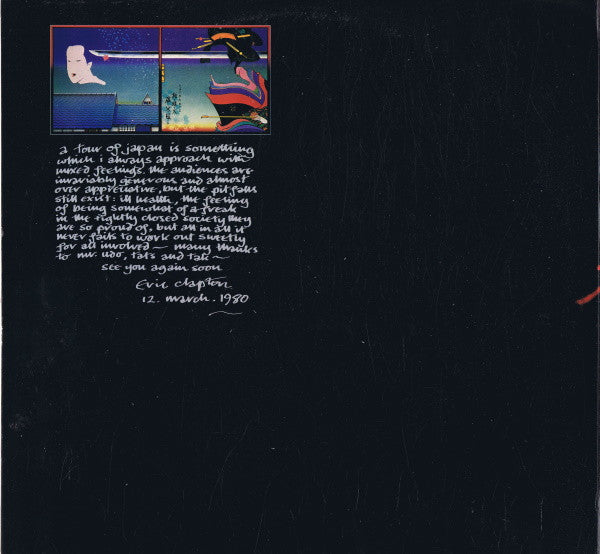 a tour of japan is something
which i always approach with
mixed feelings. the audiences are
invariably generous and almost
over appreciative, but the pitfalls
still exist: ill health, the feeling
of being somewhat of a freak
in the tightly closed society they
are so proud of, but all in all it
never fails to work out sweetly
for all involved — many thanks
to mr. udo, tats and tak —
see you again soon
Eric Clapton
12. march. 1980